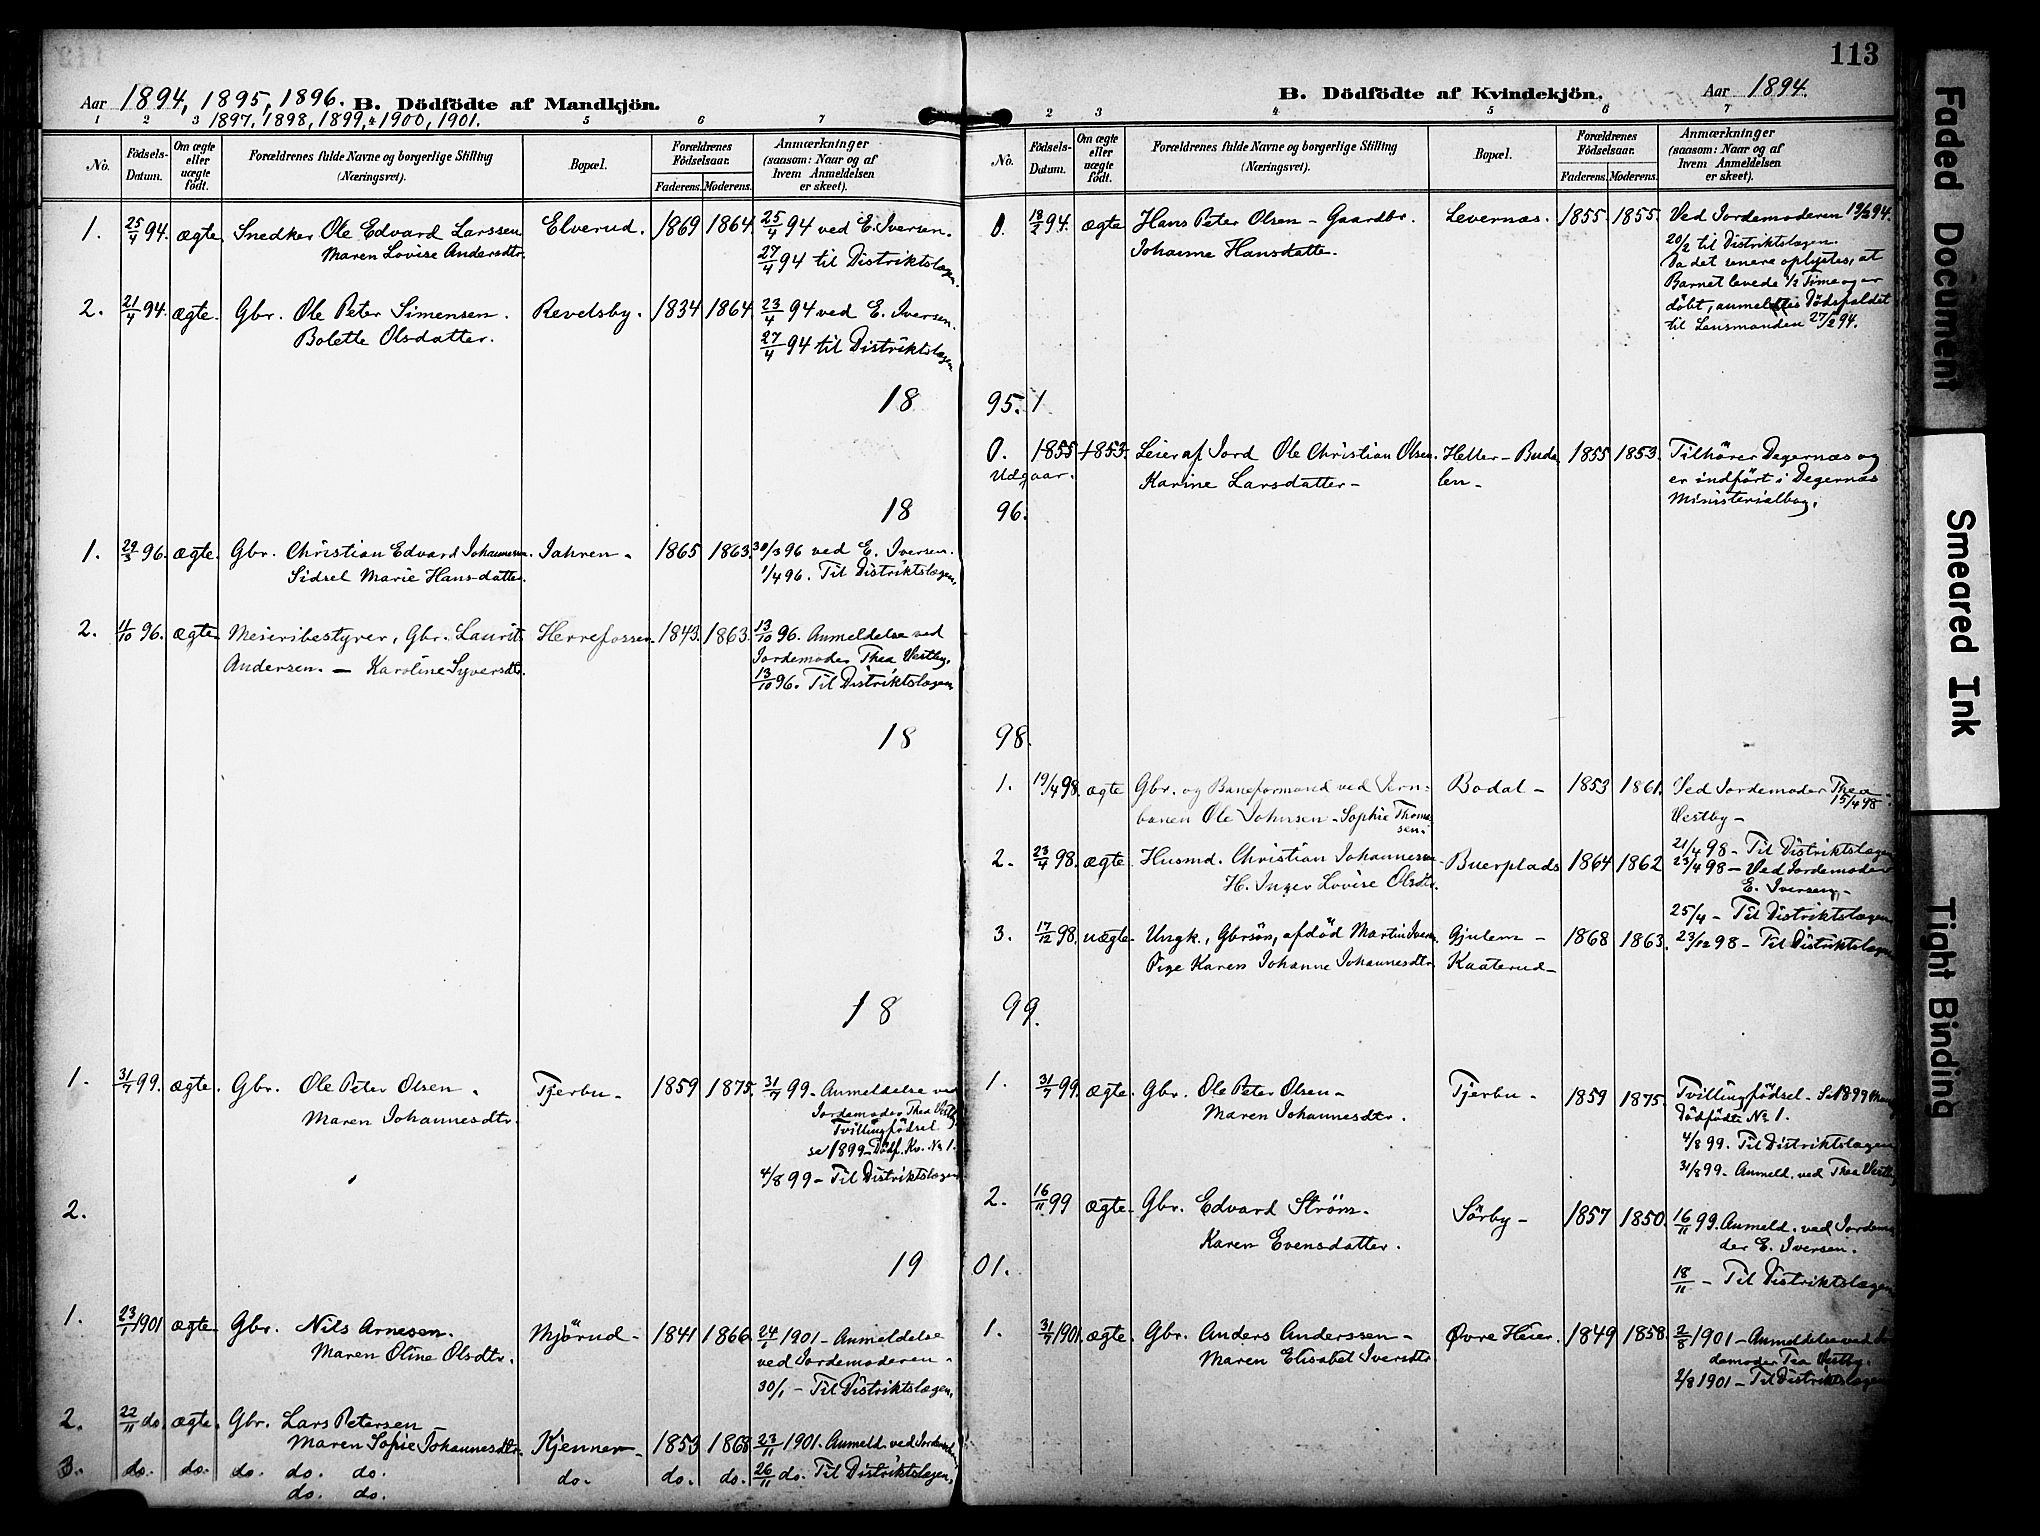 113
Aar 1894, 1895, 1896. B. Dödfödte af Mandkjön.
1897, 1898, 1899, 1900, 1901.
1 2 3 4 5 6 7
No. Födsels-Datum. Om ægte eller uægte födt. Forældrenes fulde Navne og borgerlige Stilling (Næringsvei). Bopæl. Forældrenes Födselsaar. Faderens. Moderens. Anmærkninger (saasom: Naar og af hvem Anmeldelsen er skeet).
1. 25/4 94. ægte Snedker Ole Edvard Larssen Elverud. 1869 1864. 25/4 94 ved E. Iversen.
Maren Lovise Andersdtr. 27/4 94 til Distriktslægen.
2. 21/4 94. ægte. Gbr. Ole Peter Simensen. Revelsby. 1834 1864. 23/4 94 ved E. Iversen.
Bolette Olsdatter. 27/4 94 til Distriktslægen
18
18
1. 29/3 96. ægte. Gbr. Christian Edvard Johannesen. Jahren - 1865 1863. 30/3 96 ved E. Iversen.
Sidsel Marie Hansdatter. 1/4 96. Til Distriktslægen.
2. 11/10 96. ægte. Meieribestyrer, Gbr. Laurits Herrefossen. 1843. 1863. 13/10 96. Anmeldelse ved
Andersen. - Karoline Syversdtr. Jordemoder Thea Vestby.
13/10 96. Til Distriktslægen
18
18
1. 31/7 99. ægte. Gbr. Ole Peter Olsen Tjerbu - 1859 1875. 31/7 99. Anmeldelse ved
Maren Johannesdtr. Jordemoder Thea Vestby
Tvillingfödsel
se 1899 - Dödf. Kv. No 1.
4/8 99 - Til Distriktslægen
2.
19
1. 23/1 1901 ægte. Gbr. Nils Arnesen. Mjörud - 1841 1866. 24/1 1901 - Anmeldelse
Maren Oline Olsdtr. ved Jordemoderen -
30/1 - Til Distriktslægen.
2. 22/11 do. ægte. Gbr. Lars Petersen
Maren Sofie Johannesdtr. Kjenner - 1853 1868 23/11 1901. Anmeld. ved Jordemoder
3. do. do. do. do. do. do. do. do. 26/11 do. Til Distriktslægen.
do. do.
B. Dödfödte af Kvindekjön. Aar 1894.
2 3 4 5 6 7
No. Födsels-Datum. Om ægte eller uægte födt. Forældrenes fulde Navne og borgerlige Stilling (Næringsvei). Bopæl. Forældrenes Födselsaar. Faderens. Moderens. Anmærkninger (saasom: Naar og af hvem Anmeldelsen er skeet).
0. 18/2 94. ægte Hans Peter Olsen - Gaardbr. Levernæs. 1855 1855. Ved Jordemoderen 19/2 94.
Johanne Hansdatter. 20/2 til Distriktslægen.
Da det senere oplystes, at
Barnet levede 1/2 Time og er
döbt, anmeldtes Dödsfaldet
til Lensmanden 27/2 94.
95. 1
0. 1855 1853. Leier af Jord Ole Christian Olsen. Heller - Buda- 1855 1853. Tilhörer Degernæs og
Udgaar. Karine Larsdatter - len - er indfört i Degernæs
Ministerialbog.
96.
98.
1. 19/4 98. ægte Gbr. og Baneformand ved Jern- Bodal - 1853 1861. Ved Jordemoder Thea
banen Ole Johnsen - Sophie Thomassen. Vestby - 15/4 98
21/4 98 - Til Distriktslægen
2. 23/4 98. ægte Husmd. Christian Johannesen Buerplads 1864 1862 23/4 98 - Ved Jordemoder
H. Inger Lovise Olsdtr. E. Iversen -
25/4 - Til Distriktslægen
3. 17/12 98. uægte. Ungk., Gbrsön, afdöd Martin Iversen. Gjulem - 1868 1863. 23/12 98 - Til Distriktslægen
Pige Karen Johanne Johannesdtr. Kaaterud -
99.
1. 31/7 99. ægte. Gbr. Ole Peter Olsen - Tjerbu - 1859 1875. Tvillingfödsel - Se 1899 Mandk.
Maren Johannesdtr. Dödfödte No 1.
4/8 99. Til Distriktslægen
31/8 99. Anmeld. ved Thea Vestby
2. 16/11 99 ægte. Gbr. Edvard Strøm. Sörby - 1857 1850. 16/11 99. Anmeld. ved Jordemo-
Karen Evensdatter. der E. Iversen.
18/11 - Til Distriktslægen
01.
1. 31/7 1901. ægte. Gbr. Anders Anderssen - Øvre Heier. 1849 1858. 2/8 1901 - Anmeldelse ved Jor-
Maren Elisabet Iversdtr. demoder Tea Vestby.
2/8 1901 - Til Distriktslægen
Faded Document
Smeared Ink
Tight Binding